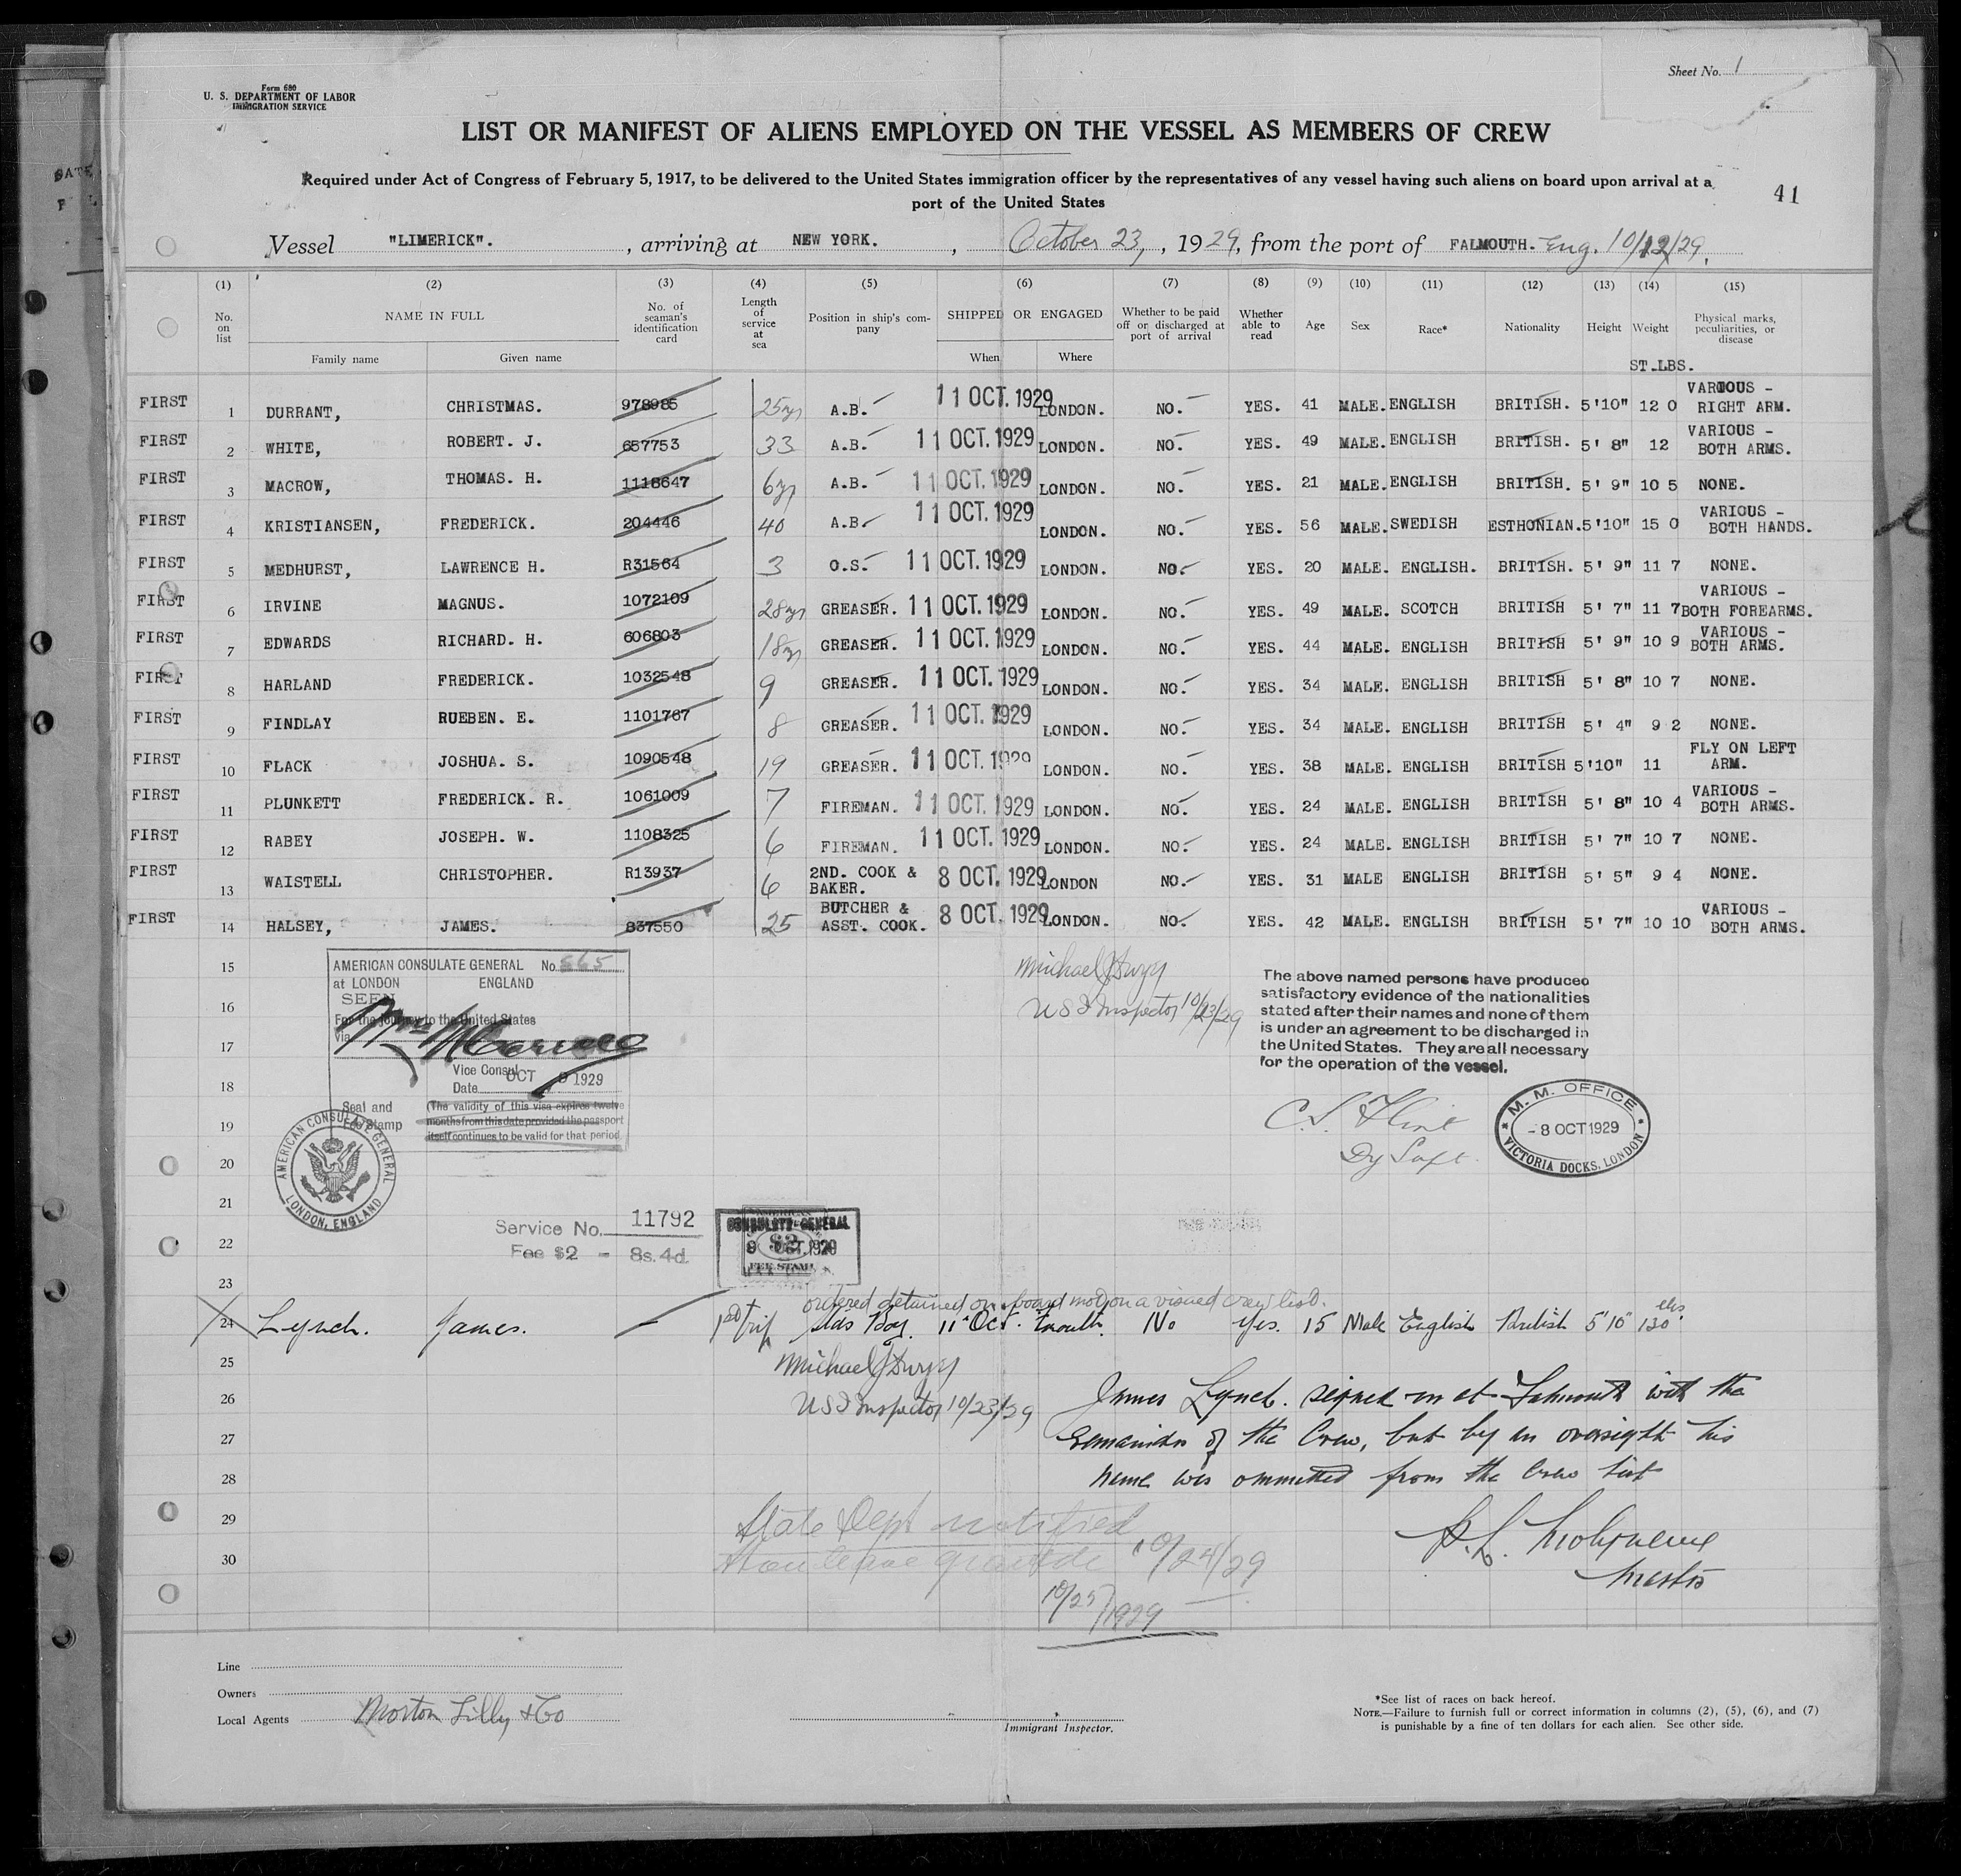 Sheet No. 1
Form 680
U. S. DEPARTMENT OF LABOR
IMMIGRATION SERVICE
LIST OR MANIFEST OF ALIENS EMPLOYED ON THE VESSEL AS MEMBERS OF CREW
Required under Act of Congress of February 5, 1917, to be delivered to the United States immigration officer by the representatives of any vessel having such aliens on board upon arrival at a
port of the United States
41
Vessel "LIMERICK". , arriving at NEW YORK. , October 23, , 1929, from the port of FALMOUTH. Eng. 10/12/29.
(1) (2) (3) (4) (5) (6) (7) (8) (9) (10) (11) (12) (13) (14) (15)
No. on list NAME IN FULL No. of seaman's identification card Length of service at sea Position in ship's company SHIPPED OR ENGAGED Whether to be paid off or discharged at port of arrival Whether able to read Age Sex Race* Nationality Height Weight Physical marks, peculiarities, or disease
Family name Given name When Where
ST.LBS.
FIRST 1 DURRANT, CHRISTMAS. 978985 25yrs A.B. 11 OCT. 1929 LONDON. NO. YES. 41 MALE. ENGLISH BRITISH. 5'10" 12 0 VARIOUS - RIGHT ARM.
FIRST 2 WHITE, ROBERT. J. 657753 33 A.B. 11 OCT. 1929 LONDON. NO. YES. 49 MALE. ENGLISH BRITISH. 5' 8" 12 VARIOUS - BOTH ARMS.
FIRST 3 MACROW, THOMAS. H. 1118647 6yrs A.B. 11 OCT. 1929 LONDON. NO. YES. 21 MALE. ENGLISH BRITISH. 5' 9" 10 5 NONE.
FIRST 4 KRISTIANSEN, FREDERICK. 204446 40 A.B. 11 OCT. 1929 LONDON. NO. YES. 56 MALE. SWEDISH ESTHONIAN. 5'10" 15 0 VARIOUS - BOTH HANDS.
FIRST 5 MEDHURST, LAWRENCE H. R31564 3 O.S. 11 OCT. 1929 LONDON. NO. YES. 20 MALE. ENGLISH. BRITISH. 5' 9" 11 7 NONE.
FIRST 6 IRVINE MAGNUS. 1072109 28yrs GREASER. 11 OCT. 1929 LONDON. NO. YES. 49 MALE. SCOTCH BRITISH 5' 7" 11 7 VARIOUS - BOTH FOREARMS.
FIRST 7 EDWARDS RICHARD. H. 606803 18yrs GREASER. 11 OCT. 1929 LONDON. NO. YES. 44 MALE. ENGLISH BRITISH 5' 9" 10 9 VARIOUS - BOTH ARMS.
FIRST 8 HARLAND FREDERICK. 1032548 9 GREASER. 11 OCT. 1929 LONDON. NO. YES. 34 MALE. ENGLISH BRITISH 5' 8" 10 7 NONE.
FIRST 9 FINDLAY RUEBEN. E. 1101767 8 GREASER. 11 OCT. 1929 LONDON. NO. YES. 34 MALE. ENGLISH BRITISH 5' 4" 9 2 NONE.
FIRST 10 FLACK JOSHUA. S. 1090548 19 GREASER. 11 OCT. 1929 LONDON. NO. YES. 38 MALE. ENGLISH BRITISH 5'10" 11 FLY ON LEFT ARM.
FIRST 11 PLUNKETT FREDERICK. R. 1061009 7 FIREMAN. 11 OCT. 1929 LONDON. NO. YES. 24 MALE. ENGLISH BRITISH 5' 8" 10 4 VARIOUS - BOTH ARMS.
FIRST 12 RABEY JOSEPH. W. 1108325 6 FIREMAN. 11 OCT. 1929 LONDON. NO. YES. 24 MALE. ENGLISH BRITISH 5' 7" 10 7 NONE.
FIRST 13 WAISTELL CHRISTOPHER. R13937 6 2ND. COOK & BAKER. 8 OCT. 1929 LONDON NO. YES. 31 MALE ENGLISH BRITISH 5' 5" 9 4 NONE.
FIRST 14 HALSEY, JAMES. 837550 25 BUTCHER & ASST. COOK. 8 OCT. 1929 LONDON. NO. YES. 42 MALE. ENGLISH BRITISH 5' 7" 10 10 VARIOUS - BOTH ARMS.
15
16
17
18
19
20
21
22
23
AMERICAN CONSULATE GENERAL No. 565
at LONDON ENGLAND
SEEN
For the journey to the United States
Via
Vice Consul
Date OCT 9 1929
Seal and
Fee Stamp
(The validity of this visa expires twelve
months from this date provided the passport
itself continues to be valid for that period.
AMERICAN CONSULATE GENERAL
LONDON, ENGLAND
Michael J Dwyer
US I Inspector 10/23/29
The above named persons have produced
satisfactory evidence of the nationalities
stated after their names and none of them
is under an agreement to be discharged in
the United States. They are all necessary
for the operation of the vessel.
C. S. Flint
Dy Supt.
M. M. OFFICE
- 8 OCT 1929
VICTORIA DOCKS, LONDON
Service No. 11792
Fee $2 = 8s. 4d.
AMERICAN
CONSULATE GENERAL
9 OCT. 1929
$2
FEE STAMP
ordered detained on board not on a visaed crew list.
24 Lynch. James. — 1st trip Dk Boy. 11 Oct. Falmouth. No Yes. 15 Male English British 5'10" 130 lbs.
25
Michael J Dwyer
US I Inspector 10/23/29
26
27
28
29
30
James Lynch. signed on at Falmouth with the
remainder of the Crew, but by an oversight his
name was ommitted from the Crew list
Master
State Dept notified
10/24/29
10/25/1929
Line
Owners
Local Agents Norton Lilly & Co
Immigrant Inspector.
*See list of races on back hereof.
NOTE.—Failure to furnish full or correct information in columns (2), (5), (6), and (7)
is punishable by a fine of ten dollars for each alien. See other side.